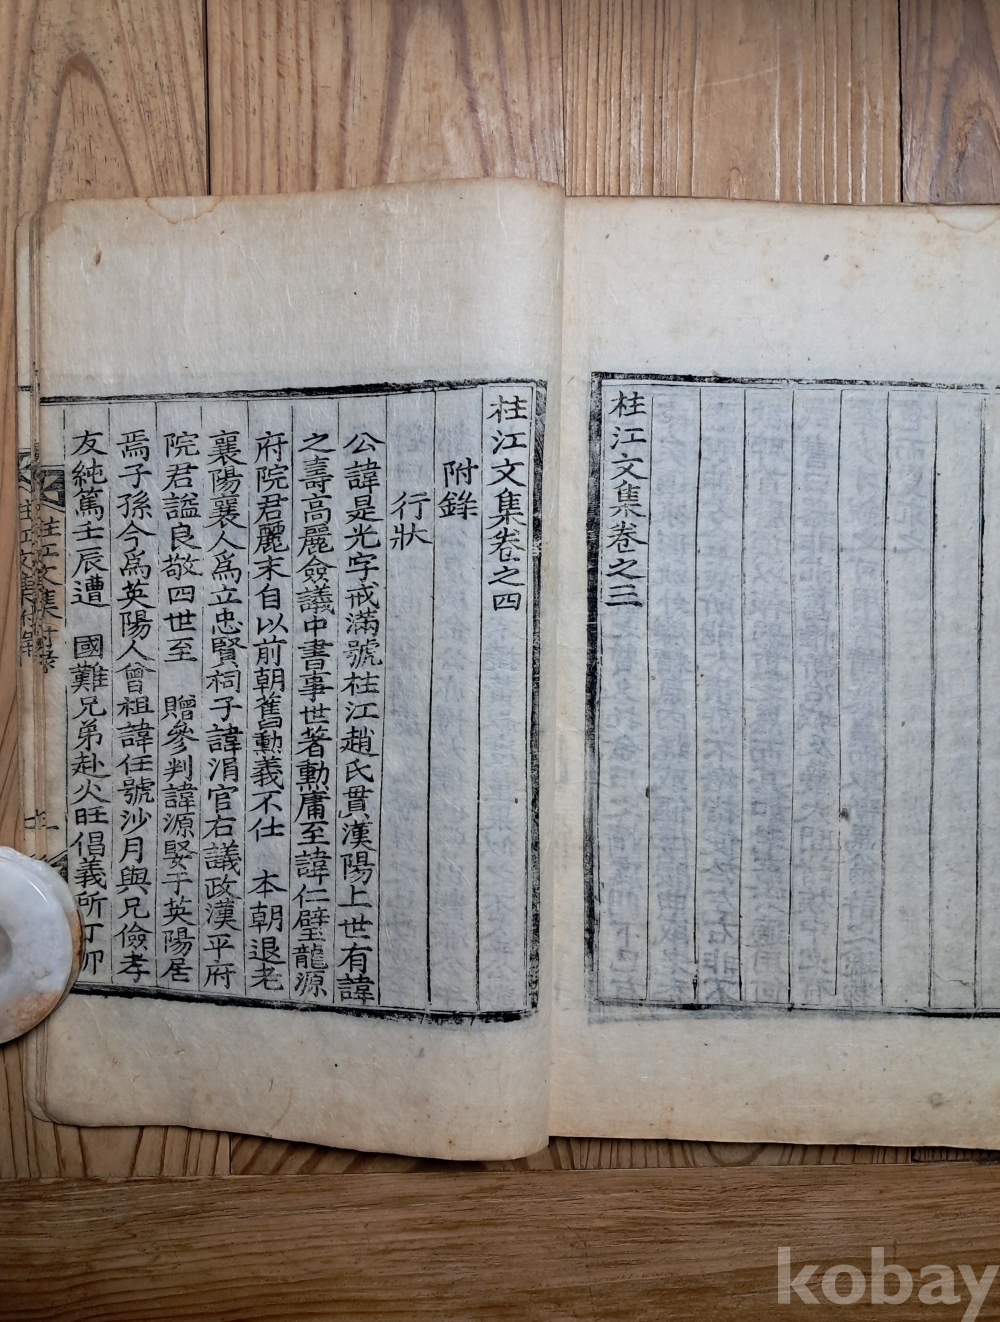 桂江文集卷之三
桂江文集卷之四
附錄
行狀
公諱是光字戒滿號桂江趙氏貫漢陽上世有諱
之壽高麗僉議中書事世著勳庸至諱仁璧龍源
府院君麗末自以前朝舊勳義不仕 本朝退老
襄陽襄人爲立忠賢祠子諱涓官右議政漢平府
院君謚良敬四世至 贈參判諱源娶于英陽居
焉子孫今爲英陽人曾祖諱任號沙月與兄儉孝
友純篤壬辰遭 國難兄弟赴火旺倡義所丁卯
桂江文集附錄
kobay